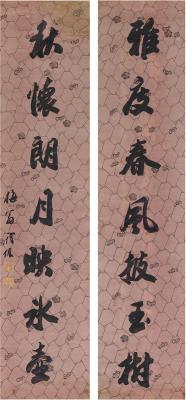 雅度春風披玉樹
秋懷朗月映冰壺